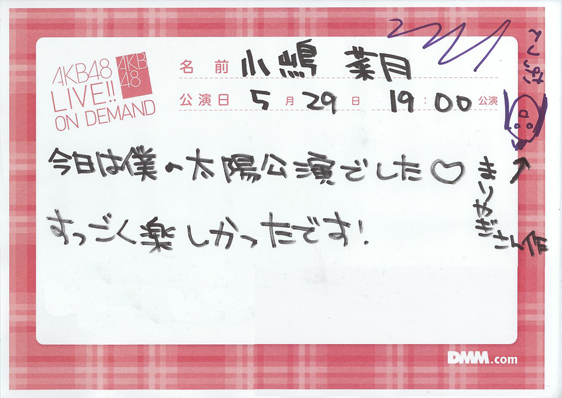 AKB48
LIVE!!
ON DEMAND
AKB
48
名前 小嶋 菜月
公演日 5月29日 19:00公演
今日は僕の太陽公演でした♡
すっごく楽しかったです!
なっつん
↑
まりやぎさん作
DMM.com